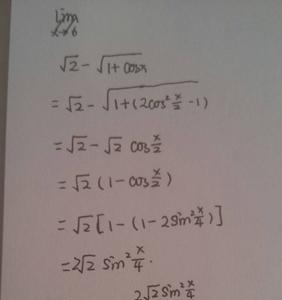 lim
x→0
√2 - √(1+cosx)
= √2 - √(1+(2cos² x/2 -1)
= √2 - √2 cos x/2
= √2 (1-cos x/2)
= √2 [1-(1-2sin² x/4)]
= 2√2 sin² x/4.
2√2 sin² x/4